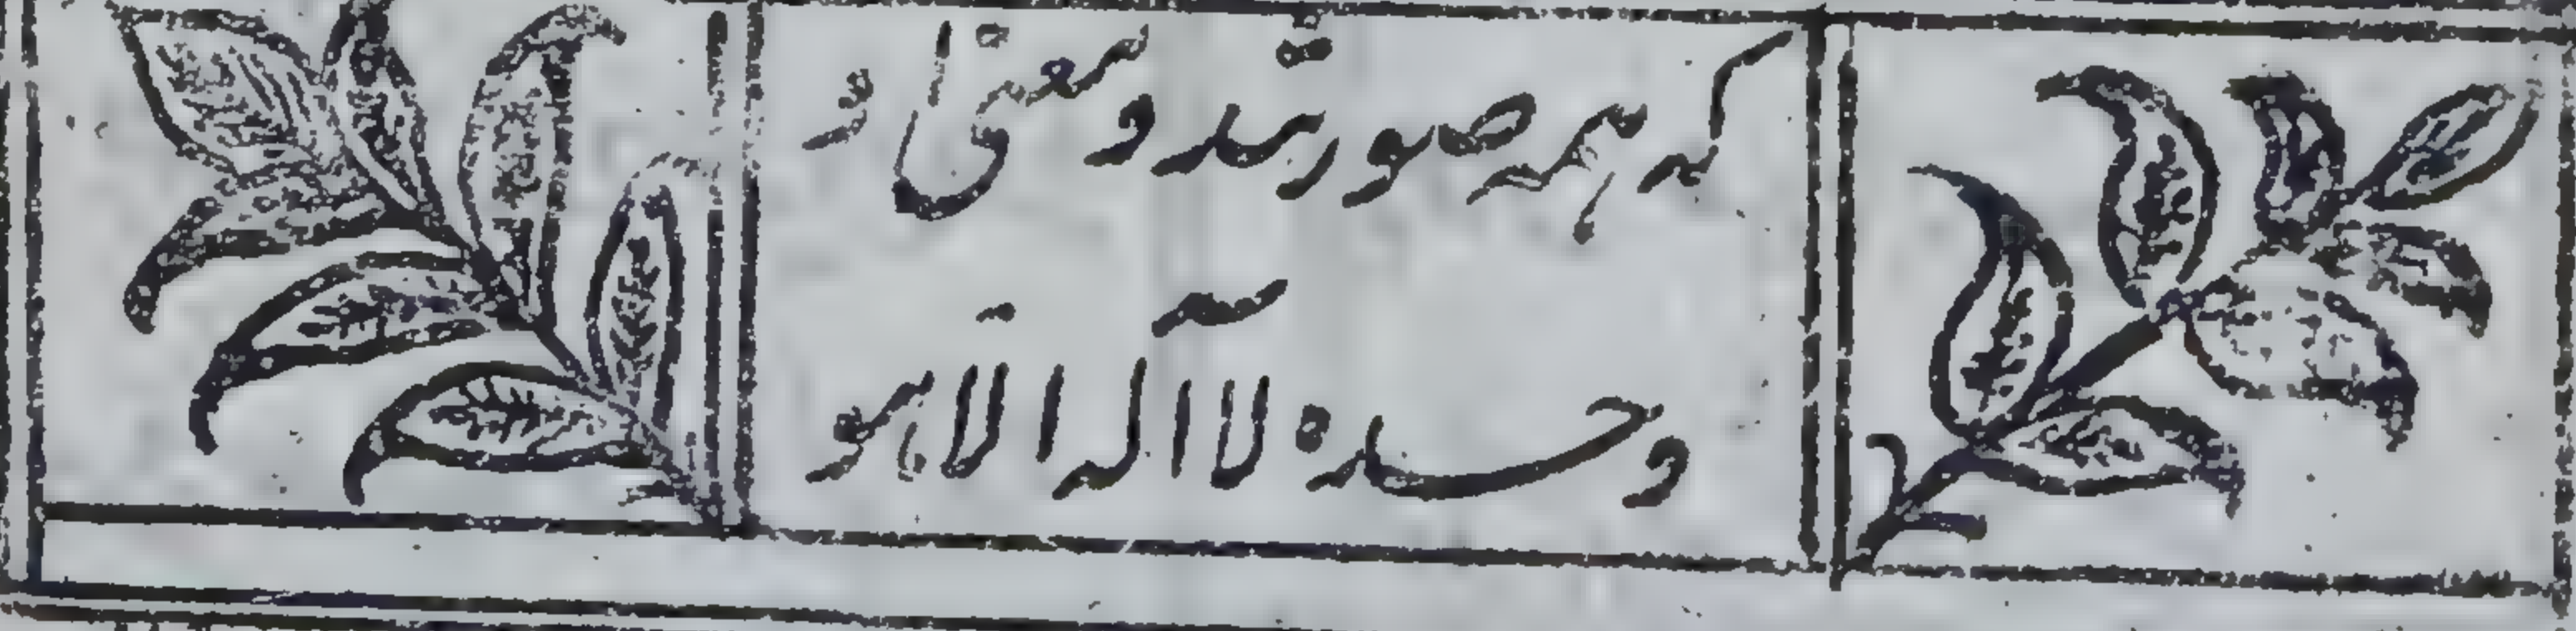 که همه صورتند و معنی او
وحده لا اله الا هو